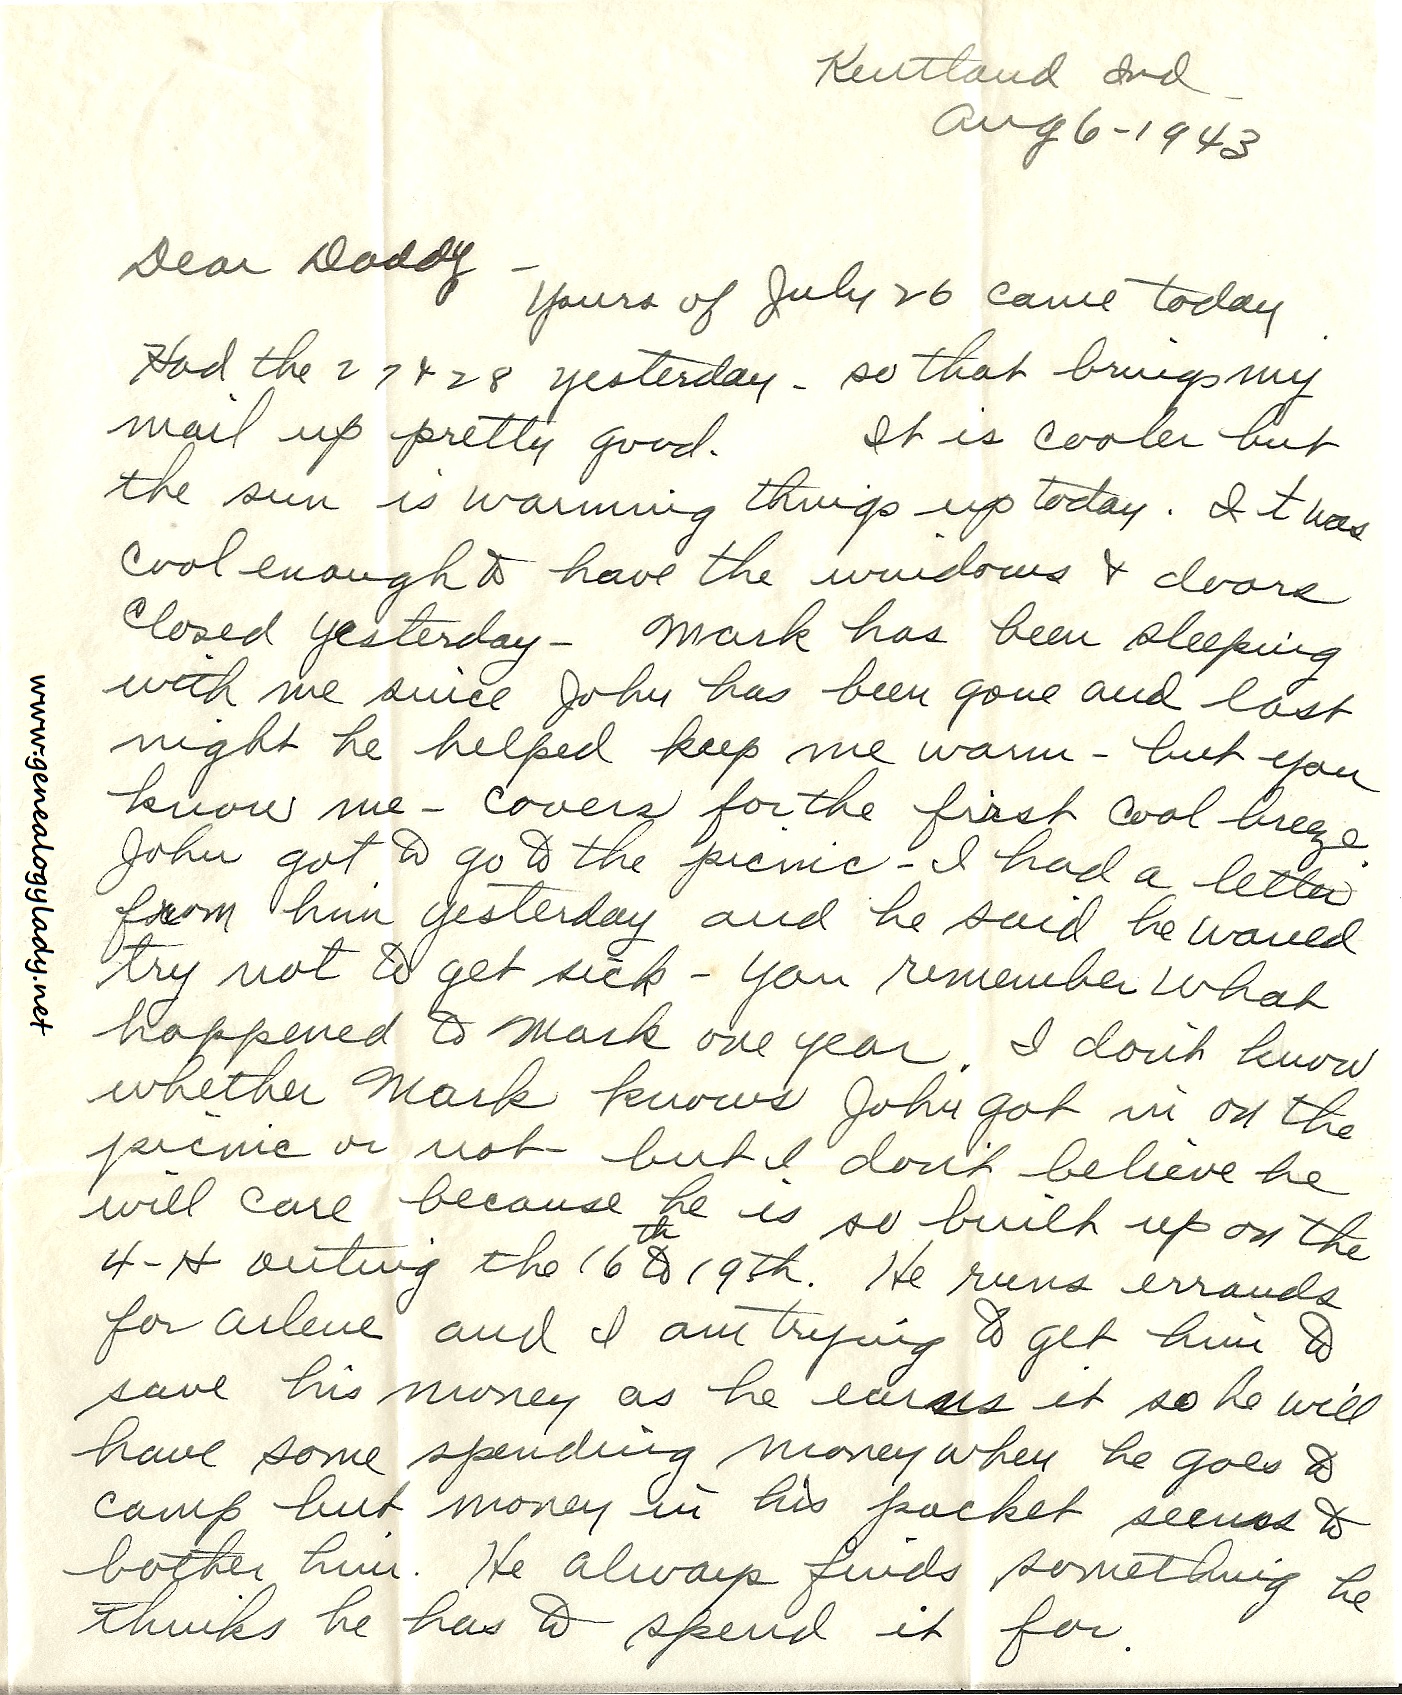 Kentland Ind
Aug 6-1943
Dear Daddy -
Yours of July 26 came today
Had the 27 & 28 yesterday - so that brings my
mail up pretty good. It is cooler but
the sun is warming things up today. It was
cool enough to have the windows & doors
closed yesterday - Mark has been sleeping
with me since John has been gone and last
night he helped keep me warm - but you
know me - covers for the first cool breeze.
John got to go to the picnic - I had a letter
from him yesterday and he said he would
try not to get sick - you remember what
happened to Mark one year. I don't know
whether Mark knows John got in on the
picnic or not - but I don't believe he
will care because he is so built up on the
4-H outing the 16th to 19th. He runs errands
for Arlene and I am trying to get him to
save his money as he earns it so he will
have some spending money when he goes to
camp but money in his pocket seems to
bother him. He always finds something he
thinks he has to spend it for.
www.genealogylady.net